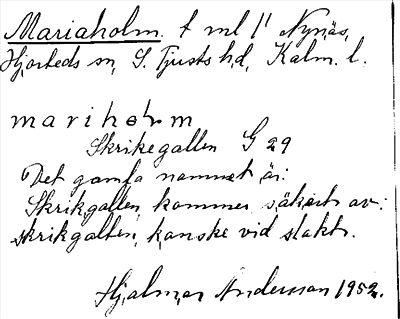 Mariaholm. t ml 1' Nynäs,
Hjorteds sn, S. Tjusts hd, Kalm. l.
mariholm
Skrikegallen G 29
Det gamla namnet är:
Skrikgallen, kommer säkert av:
skrikgalten, kanske vid slakt.
Hjalmar Andersson 1952.